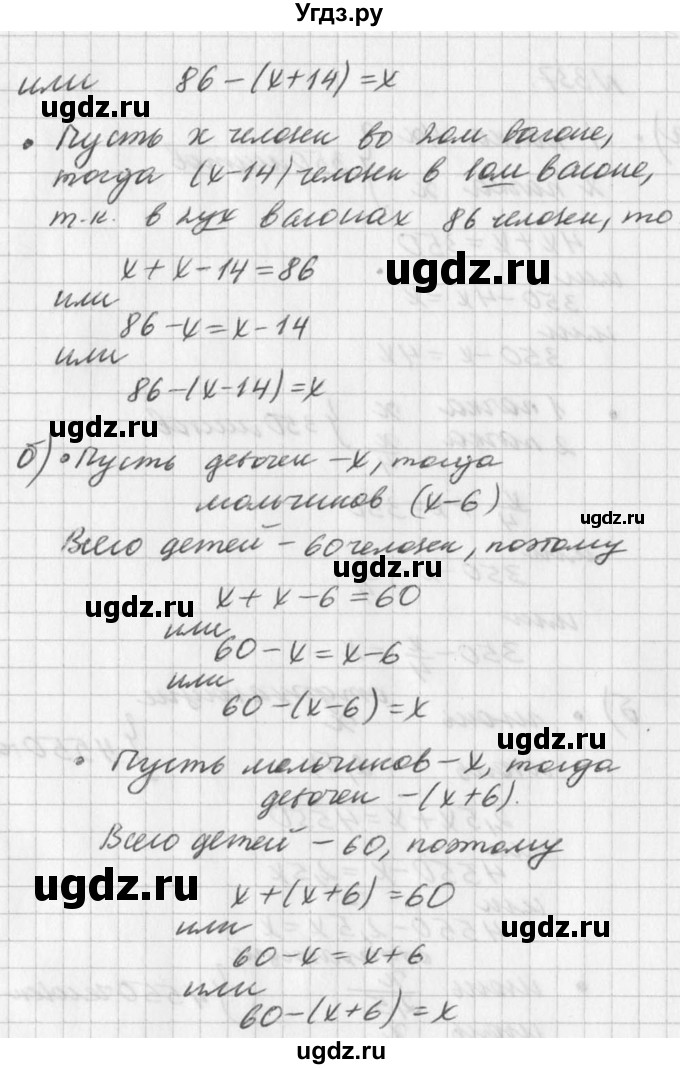 Угдз.ру
или 86-(x+14)=x
ugdz.ru
• Пусть x человек во 2ом вагоне,
тогда (x-14) человек в 1ом вагоне,
т.к. в 2ух вагонах 86 человек, то
x+x-14=86
ugdz.ru
или
86-x=x-14
или
86-(x-14)=x
ugdz.ru
б) • Пусть девочек -x, тогда
мальчиков (x-6)
ugdz.ru
Всего детей - 60 человек, поэтому
ugdz.ru
x+x-6=60
ugdz.ru
или
60-x=x-6
или
60-(x-6)=x
ugdz.ru
• Пусть мальчиков -x, тогда
девочек -(x+6).
Всего детей - 60, поэтому
ugdz.ru
x+(x+6)=60
или
ugdz.ru
60-x=x+6
или
60-(x+6)=x
ugdz.ru